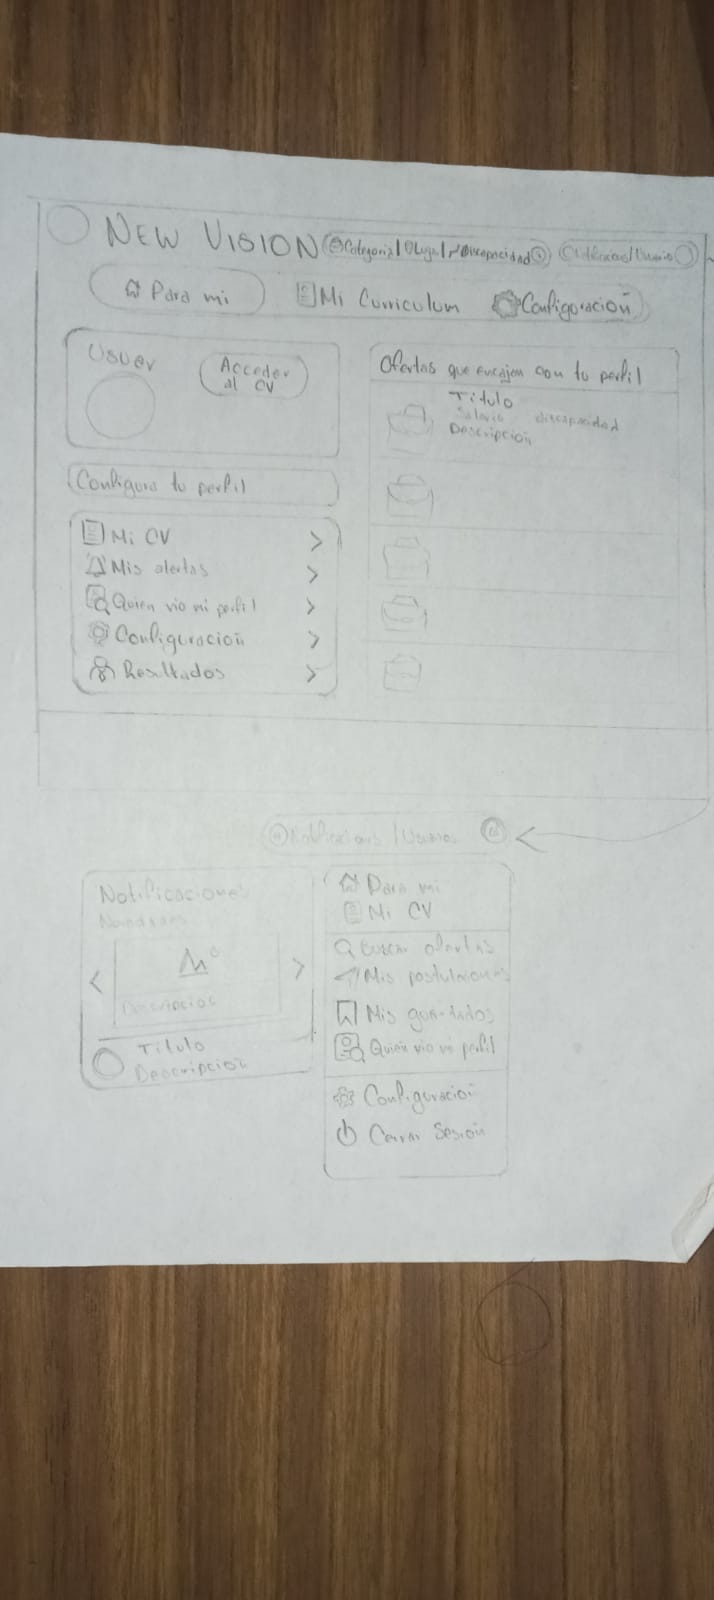 NEW VISION Categoria / Lugar / Discapacidad / Usuario
Para mi Mi Curriculum Configuración
Usuer
Acceder
al CV
Configura tu perfil
Mi CV
Mis alertas
Quien vio mi perfil
Configuración
Resultados
Ofertas que encajen con tu perfil
Título
Salario discapacidad
Descripción
/ Usuario
Notificaciones
Descripcion
Titulo
Descripción
Para mi
Mi CV
Buscar ofertas
Mis
Mis guardados
Quien vio mi perfil
Configuración
Cerrar Sesión